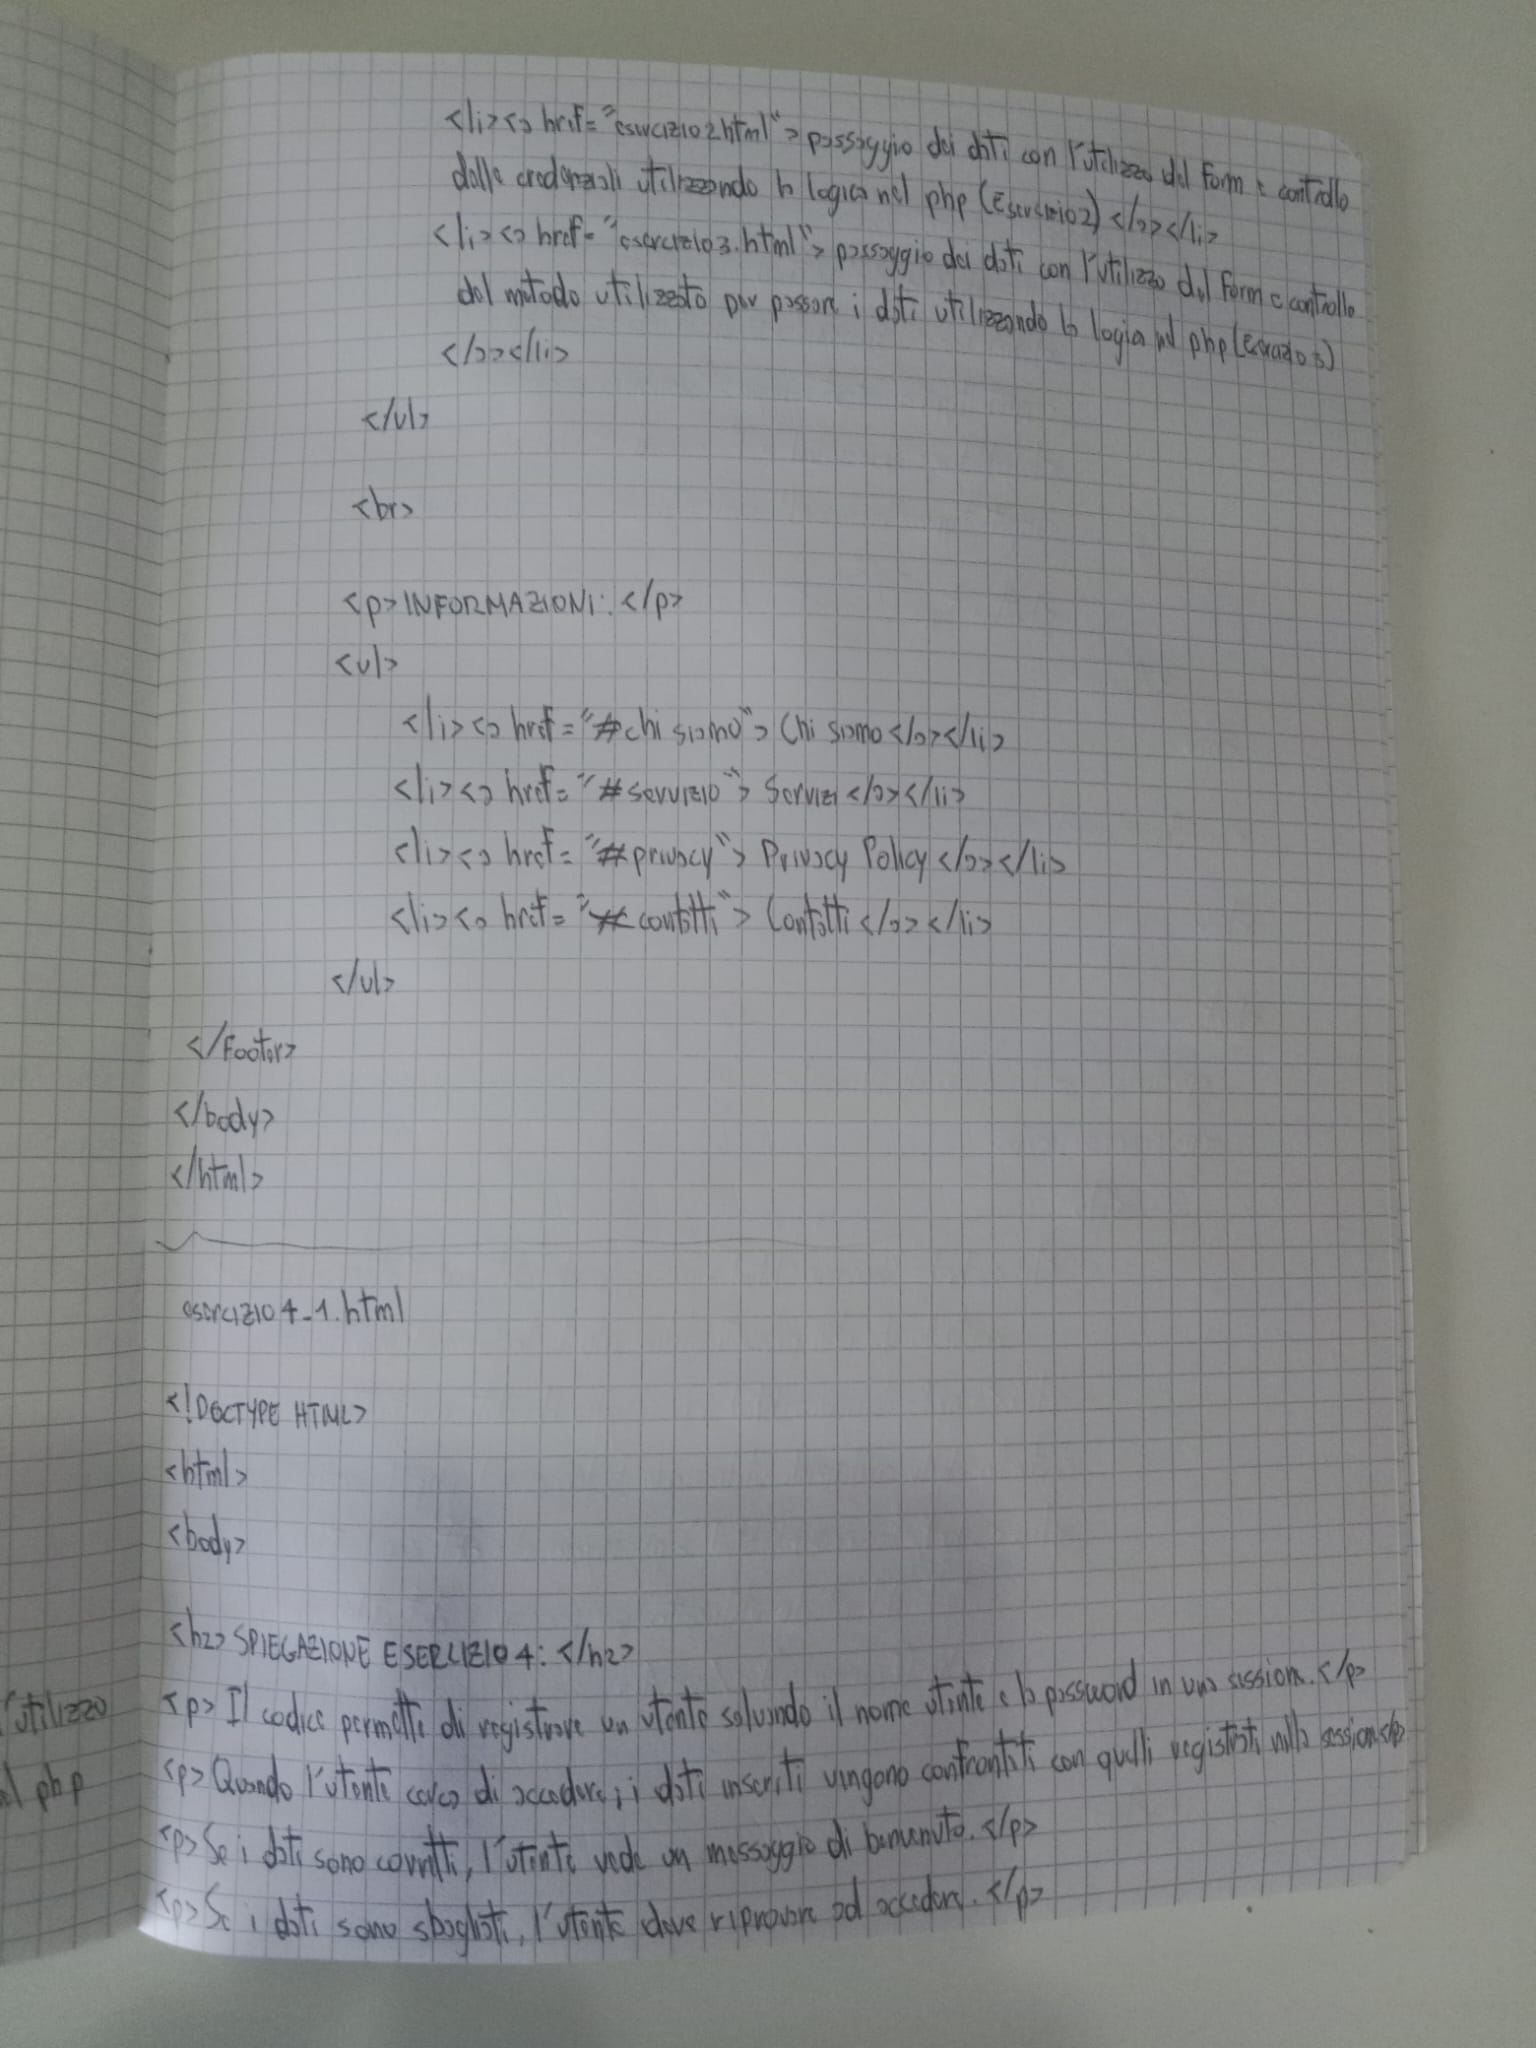 <li><a href="esercizio2html">passaggio dei dati con l'utilizzo del form e controllo
delle credenziali utilizzando la logica nel php (Esercizio2)</a></li>
<li><a href="esercizio3.html">passaggio dei dati con l'utilizzo del form e controllo
del metodo utilizzato per passare i dati utilizzando la logia nel php (Esercizio3)
</a></li>
</ul>
<br>
<p>INFORMAZIONI:</p>
<ul>
<li><a href="#chi siamo">Chi siamo</a></li>
<li><a href="#servizio">Servizi</a></li>
<li><a href="#privacy">Privacy Policy</a></li>
<li><a href="#contatti">Contatti</a></li>
</ul>
</footer>
</body>
</html>
esercizio4_1.html
<!DOCTYPE HTML>
<html>
<body>
<h2>SPIEGAZIONE ESERCIZIO 4:</h2>
<p>Il codice permette di registrare un utente salvando il nome utente e la password in una sessione.</p>
<p>Quando l'utente cerca di accedere, i dati inseriti vengono confrontati con quelli registrati nella sessione</p>
<p>Se i dati sono corretti, l'utente vede un messaggio di benvenuto.</p>
<p>Se i dati sono sbagliati, l'utente deve riprovare ad accedere.</p>
l'utilizzo
php